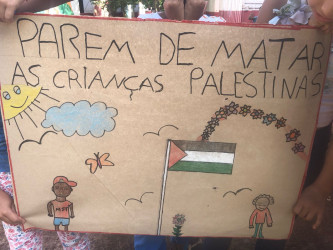 PAREM DE MATAR
AS CRIANÇAS PALESTINAS